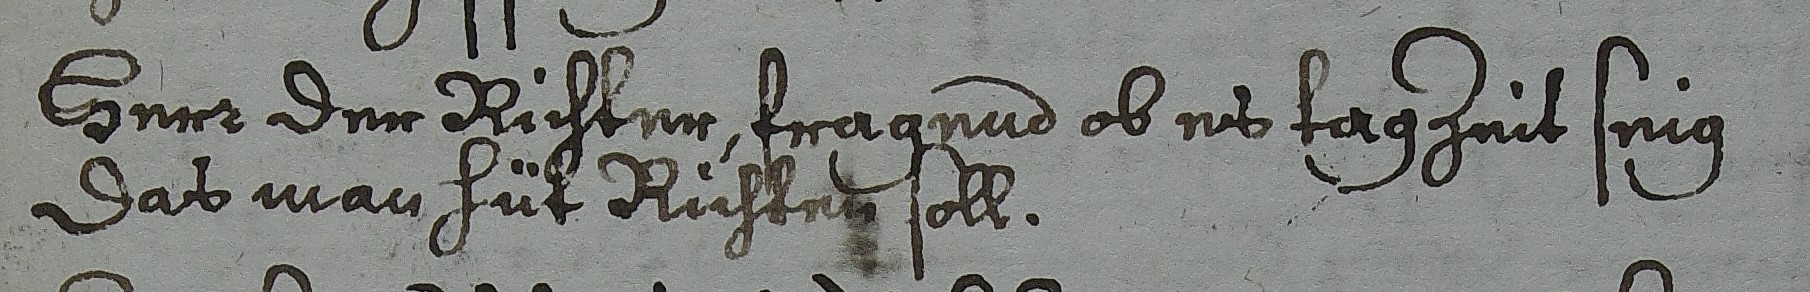 Herr der Richter, fragend ob es tagzeit seig
das man hüt Richten soll.